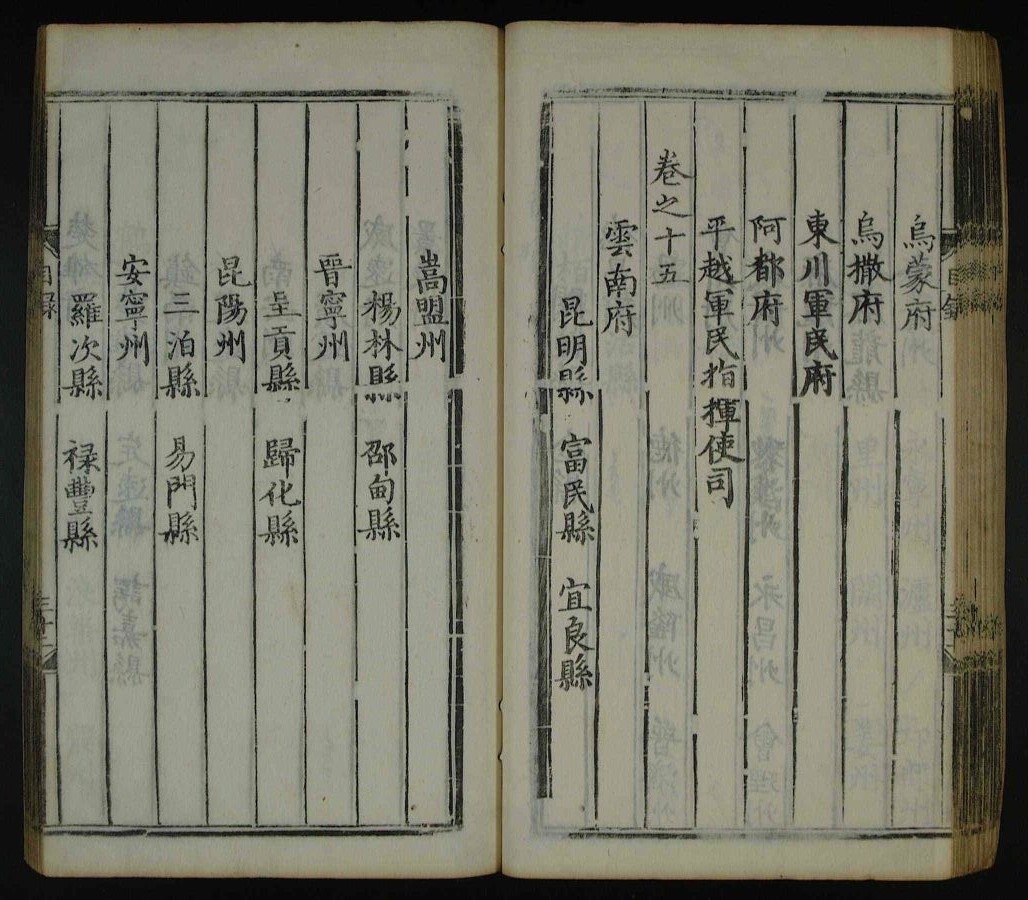 烏蒙府
烏撒府
東川軍民府
阿都府
平越軍民指揮使司
卷之十五
雲南府
昆明縣 富民縣 宜良縣
嵩盟州
楊林縣 邵甸縣
晉寧州
呈貢縣 歸化縣
昆陽州
三泊縣 易門縣
安寧州
羅次縣 祿豐縣
目録